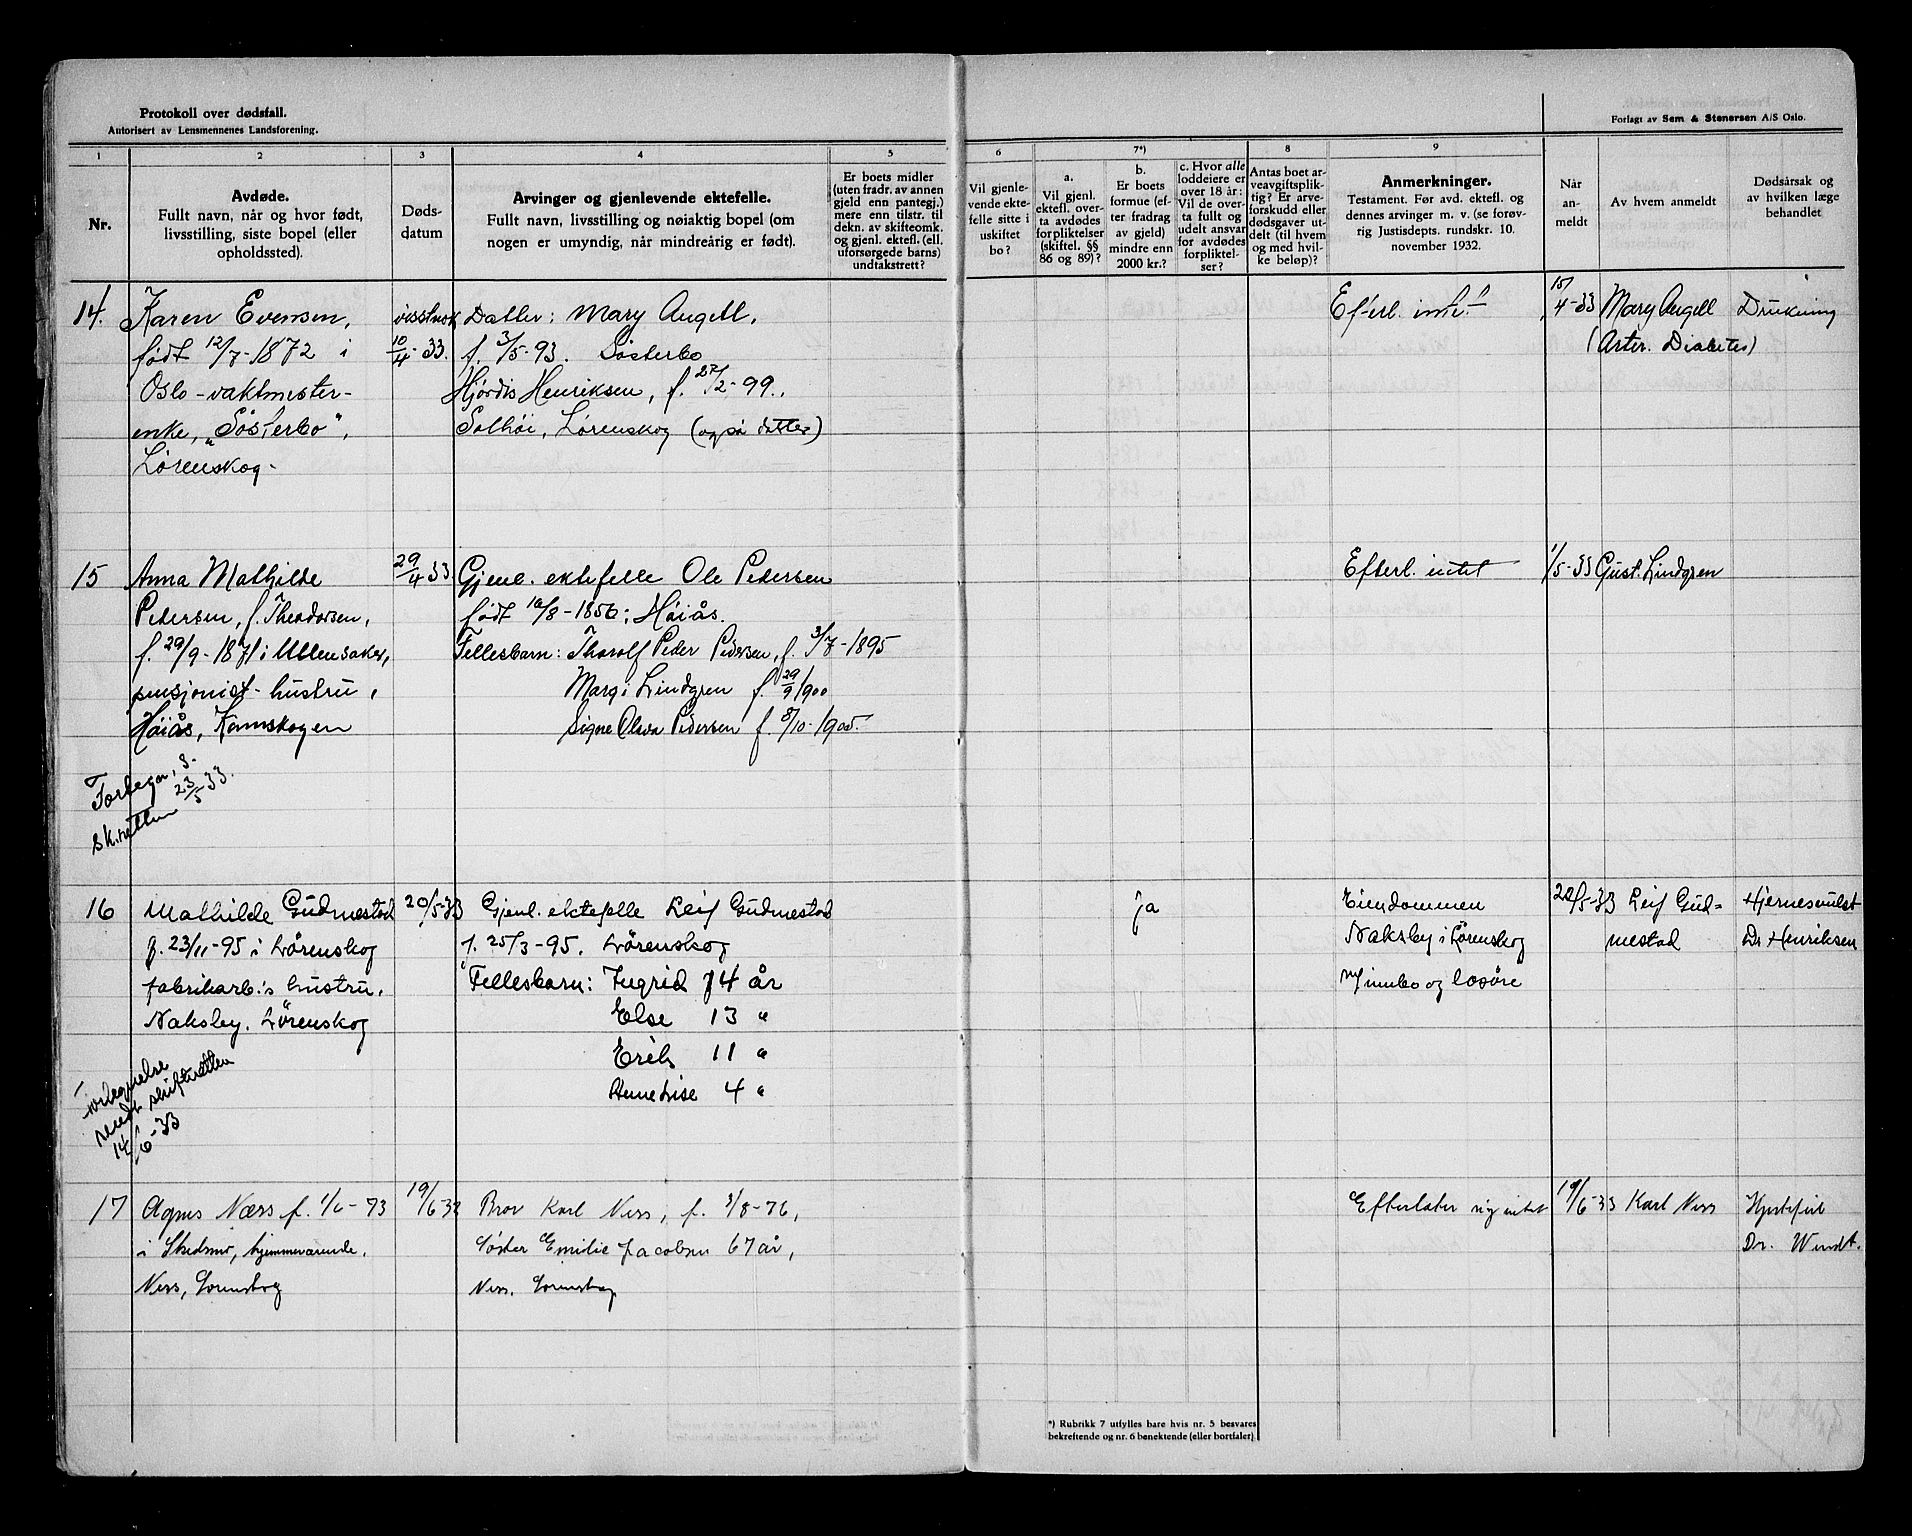 Protokoll over dødsfall.
Autorisert av Lensmennenes Landsforening.
Forlagt av Sem & Stenersen A/S Oslo.
1
2
3
4
5
6
7*)
8
9
Nr.
Avdøde.
Fullt navn, når og hvor født,
livsstilling, siste bopel (eller
opholdssted).
Døds-
datum
Arvinger og gjenlevende ektefelle.
Fullt navn, livsstilling og nøiaktig bopel (om
nogen er umyndig, når mindreårig er født).
Er boets midler
(uten fradr. av annen
gjeld enn pantegj.)
mere enn tilstr. til
dekn. av skifteomk.
og gjenl. ektef. (ell.
uforsørgede barns)
undtakstrett?
Vil gjenle-
vende ekte-
felle sitte i
uskiftet
bo?
a.
Vil gjenl.
ektefl. over-
ta avdødes
forpliktelser
(skiftel. §§
86 og 89)?
b.
Er boets
formue (ef-
ter fradrag
av gjeld)
mindre enn
2000 kr.?
c. Hvor alle
loddeiere er
over 18 år:
Vil de over-
ta fullt og
udelt ansvar
for avdødes
forpliktel-
ser?
Antas boet ar-
veavgiftsplik-
tig? Er arve-
forskudd eller
dødsgaver ut-
delt (til hvem
og med hvil-
ke beløp)?
Anmerkninger.
Testament. Før avd. ektefl. og
dennes arvinger m. v. (se forøv-
rig Justisdepts. rundskr. 10.
november 1932.
Når
an-
meldt
Av hvem anmeldt
Dødsårsak og
av hvilken læge
behandlet
14.
Karen Evensen,
født 12/7-1872 i
Oslo - vaktmester-
enke, "Søsterbo",
Lørenskog -
visstnok
10/4-33.
Datter: Mary Angell,
f. 3/5-93. Søsterbo
Hjørdis Henriksen, f. 27/2-99.,
Solhøi, Lørenskog (også datter)
Efterl. intet
15/4-33
Mary Angell
Drukning
(Arter. Diabetes)
15
Anna Mathilde
Pedersen, f. Theodorsen,
f. 29/9-1871 i Ullensaker,
pensjonist-hustru,
Høiås, Kannskogen
29/4 33
Gjenl. ektefelle Ole Pedersen
født 10/8-1856: Høiås.
Fellesbarn: Thorolf Peder Pedersen, f. 3/7-1895
Margi Lindgren f. 29/9 1900
Signe Olava Pedersen f. 8/10-1905.
Efterl. intet
1/5-33
Gust. Lindgren
23/5 33.
sk.retten
16
Mathilde Gudmestad
f. 23/11-95 i Lørenskog
fabrikarb.'s hustru.
Naksby. Lørenskog
20/5-33
Gjenl. ektefelle Leif Gudmestad
f. 25/3-95. Lørenskog
Fellesbarn: Ingrid 14 år
Else 13 "
Erik 11 "
Anne Lise 4 "
ja
Eiendommen
Naksby i Lørenskog
m/innbo og løsøre
20/5-33
Leif Gud-
mestad
Hjernesvulst
Dr Henriksen
skifteretten
14/6-33
17
Agnes Næss f. 1/6-73
i Skedsmo, hjemmeværende,
Ness, Lørenskog
19/6 33
Bror Karl Ness, f. 3/8-76,
Søster Emilie Jacobsen 67 år,
Ness. Lørenskog
Efterlater sig intet
19/6-33
Karl Ness
Hjertefeil
Dr. Wendt.
*) Rubrikk 7 utfylles bare hvis nr. 5 besvares
bekreftende og nr. 6 benektende (eller bortfaler)